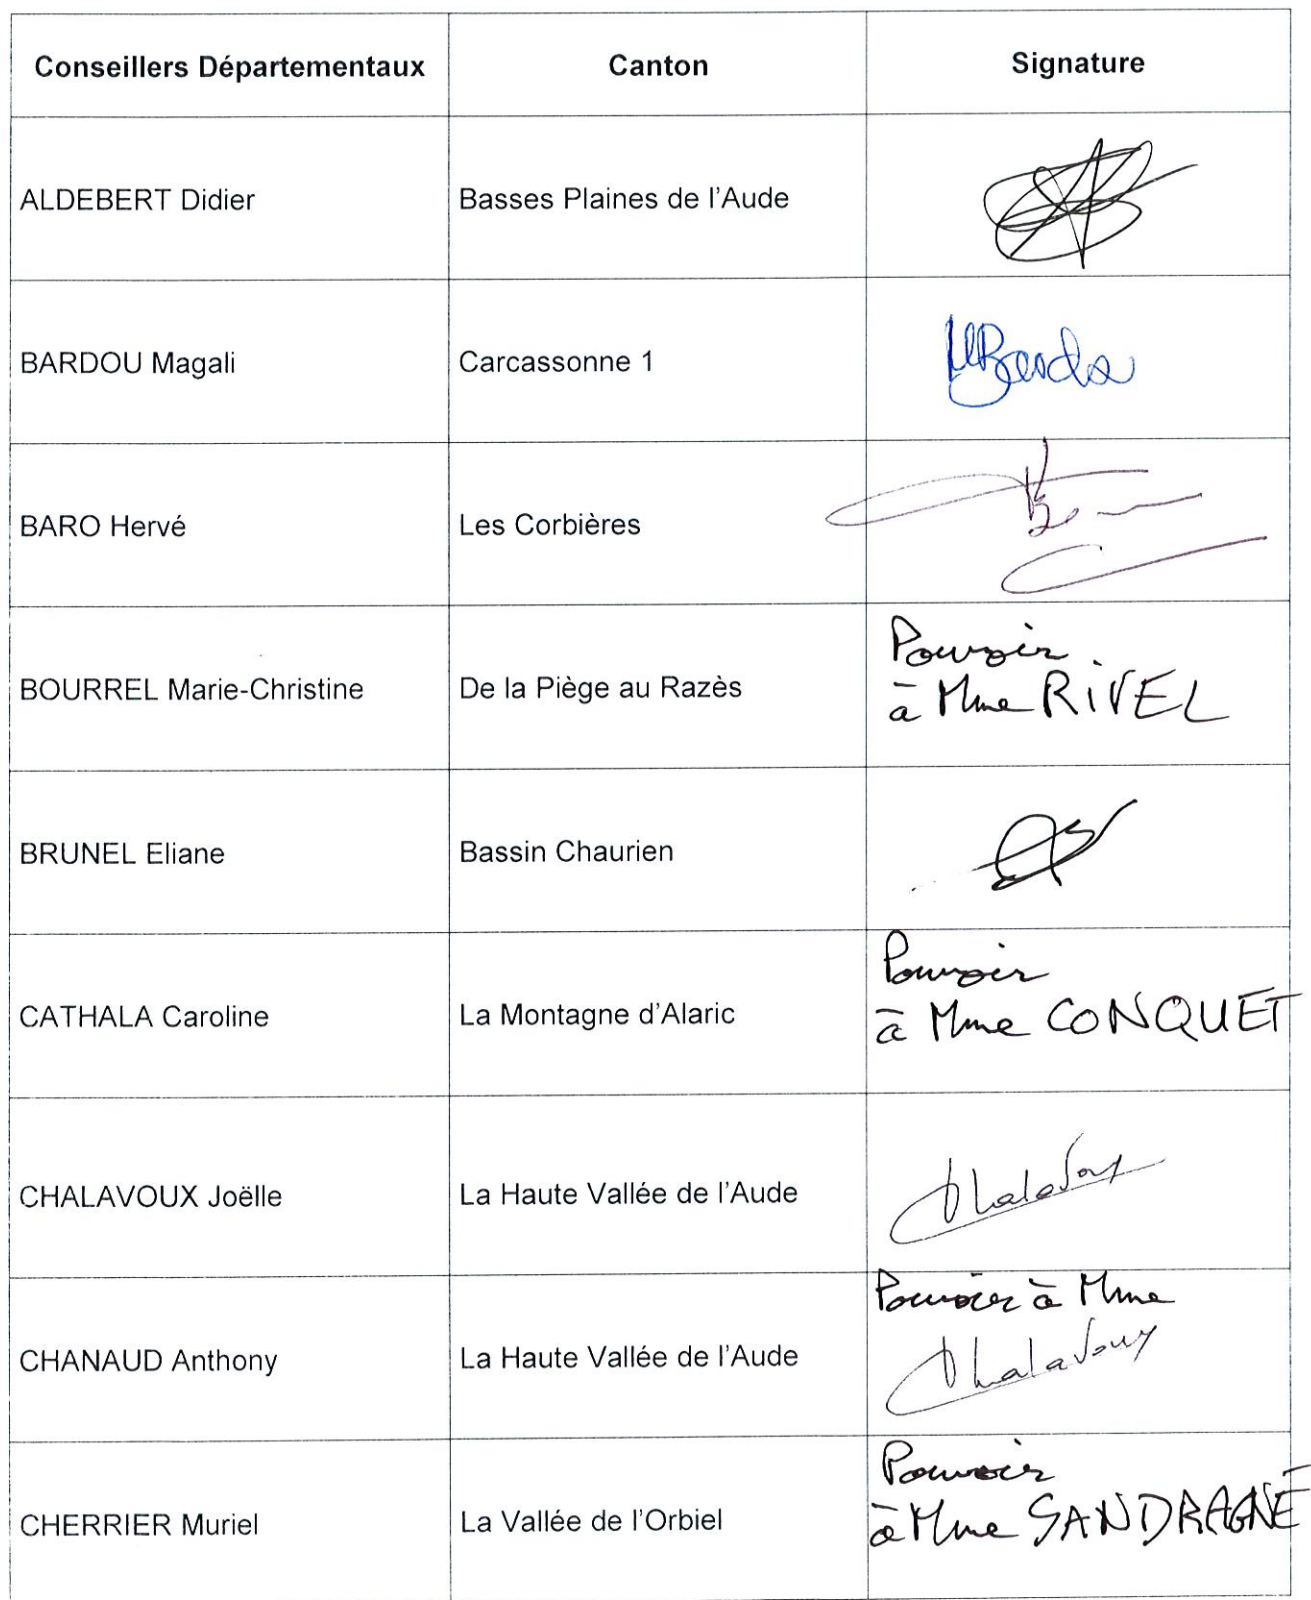 Conseillers Départementaux Canton Signature
ALDEBERT Didier Basses Plaines de l'Aude
BARDOU Magali Carcassonne 1
BARO Hervé Les Corbières
BOURREL Marie-Christine De la Piège au Razès
Pouvoir
à Mme RiVEL
BRUNEL Eliane Bassin Chaurien
CATHALA Caroline La Montagne d'Alaric
Pouvoir
à Mme CONQUET
CHALAVOUX Joëlle La Haute Vallée de l'Aude Chalavoux
CHANAUD Anthony La Haute Vallée de l'Aude
Pouvoir à Mme
Chalavoux
CHERRIER Muriel La Vallée de l'Orbiel
Pouvoir
à Mme SANDRAGNÉ